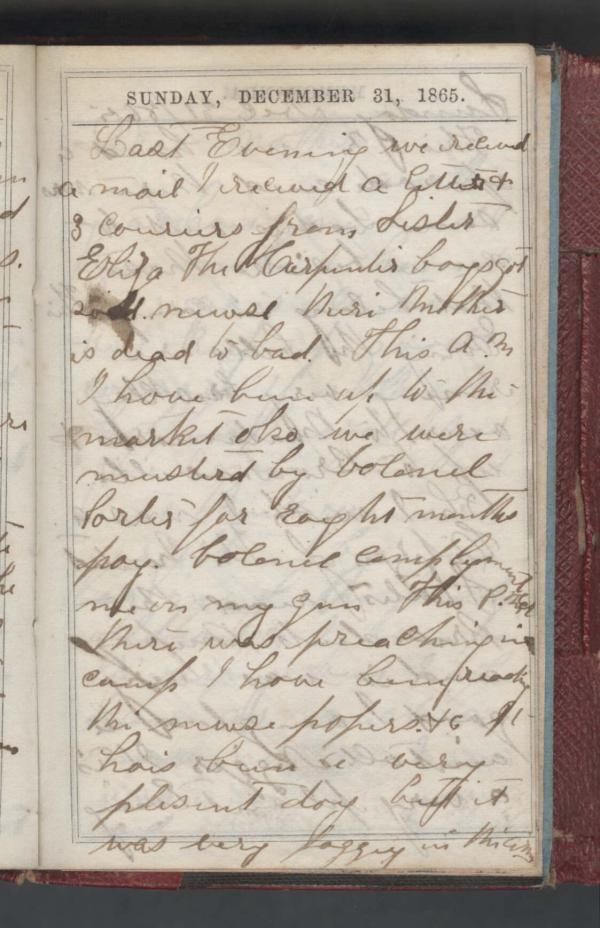 SUNDAY, DECEMBER 31, 1865.
Last Evening we recieved
a mail I recieved a letter &
3 couriers from Sister
Eliza The Carpenter boys got
sad. newse their Mother
is dead to bad. This A. M
I have been up to the
market also we were
musterd by Colonel
Porter for eaght months
pay. Colonel complyment
me on my gun This P. M
their was preaching in
camp I have been reading
the newse papers. &c It
hais been a very
plesent day but it
was very foggy in the